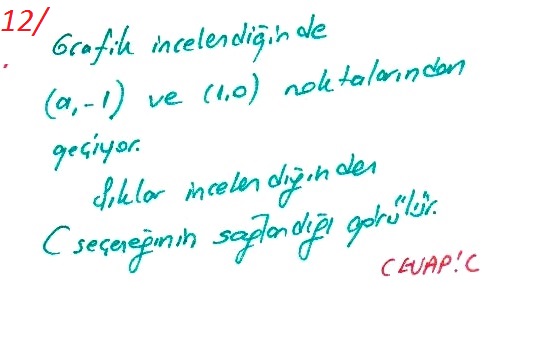 12/
Grafik incelendiğinde
(a,-1) ve (1,0) noktalarından
geçiyor.
Şıklar incelendiğinden
C seçeneğinin sağlandığı görülür.
CEVAP: C